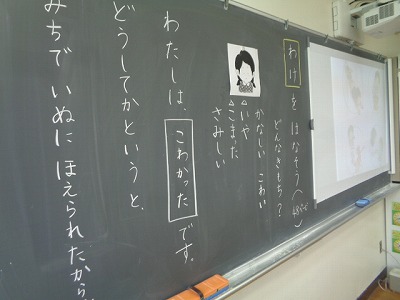 わけをはなそう(48ページ)
どんなきもち?
かなしい こわい
△いや
△こまった
さみしい
わたしは、こわかったです。
どうしてかというと、
みちでいぬにほえられたから